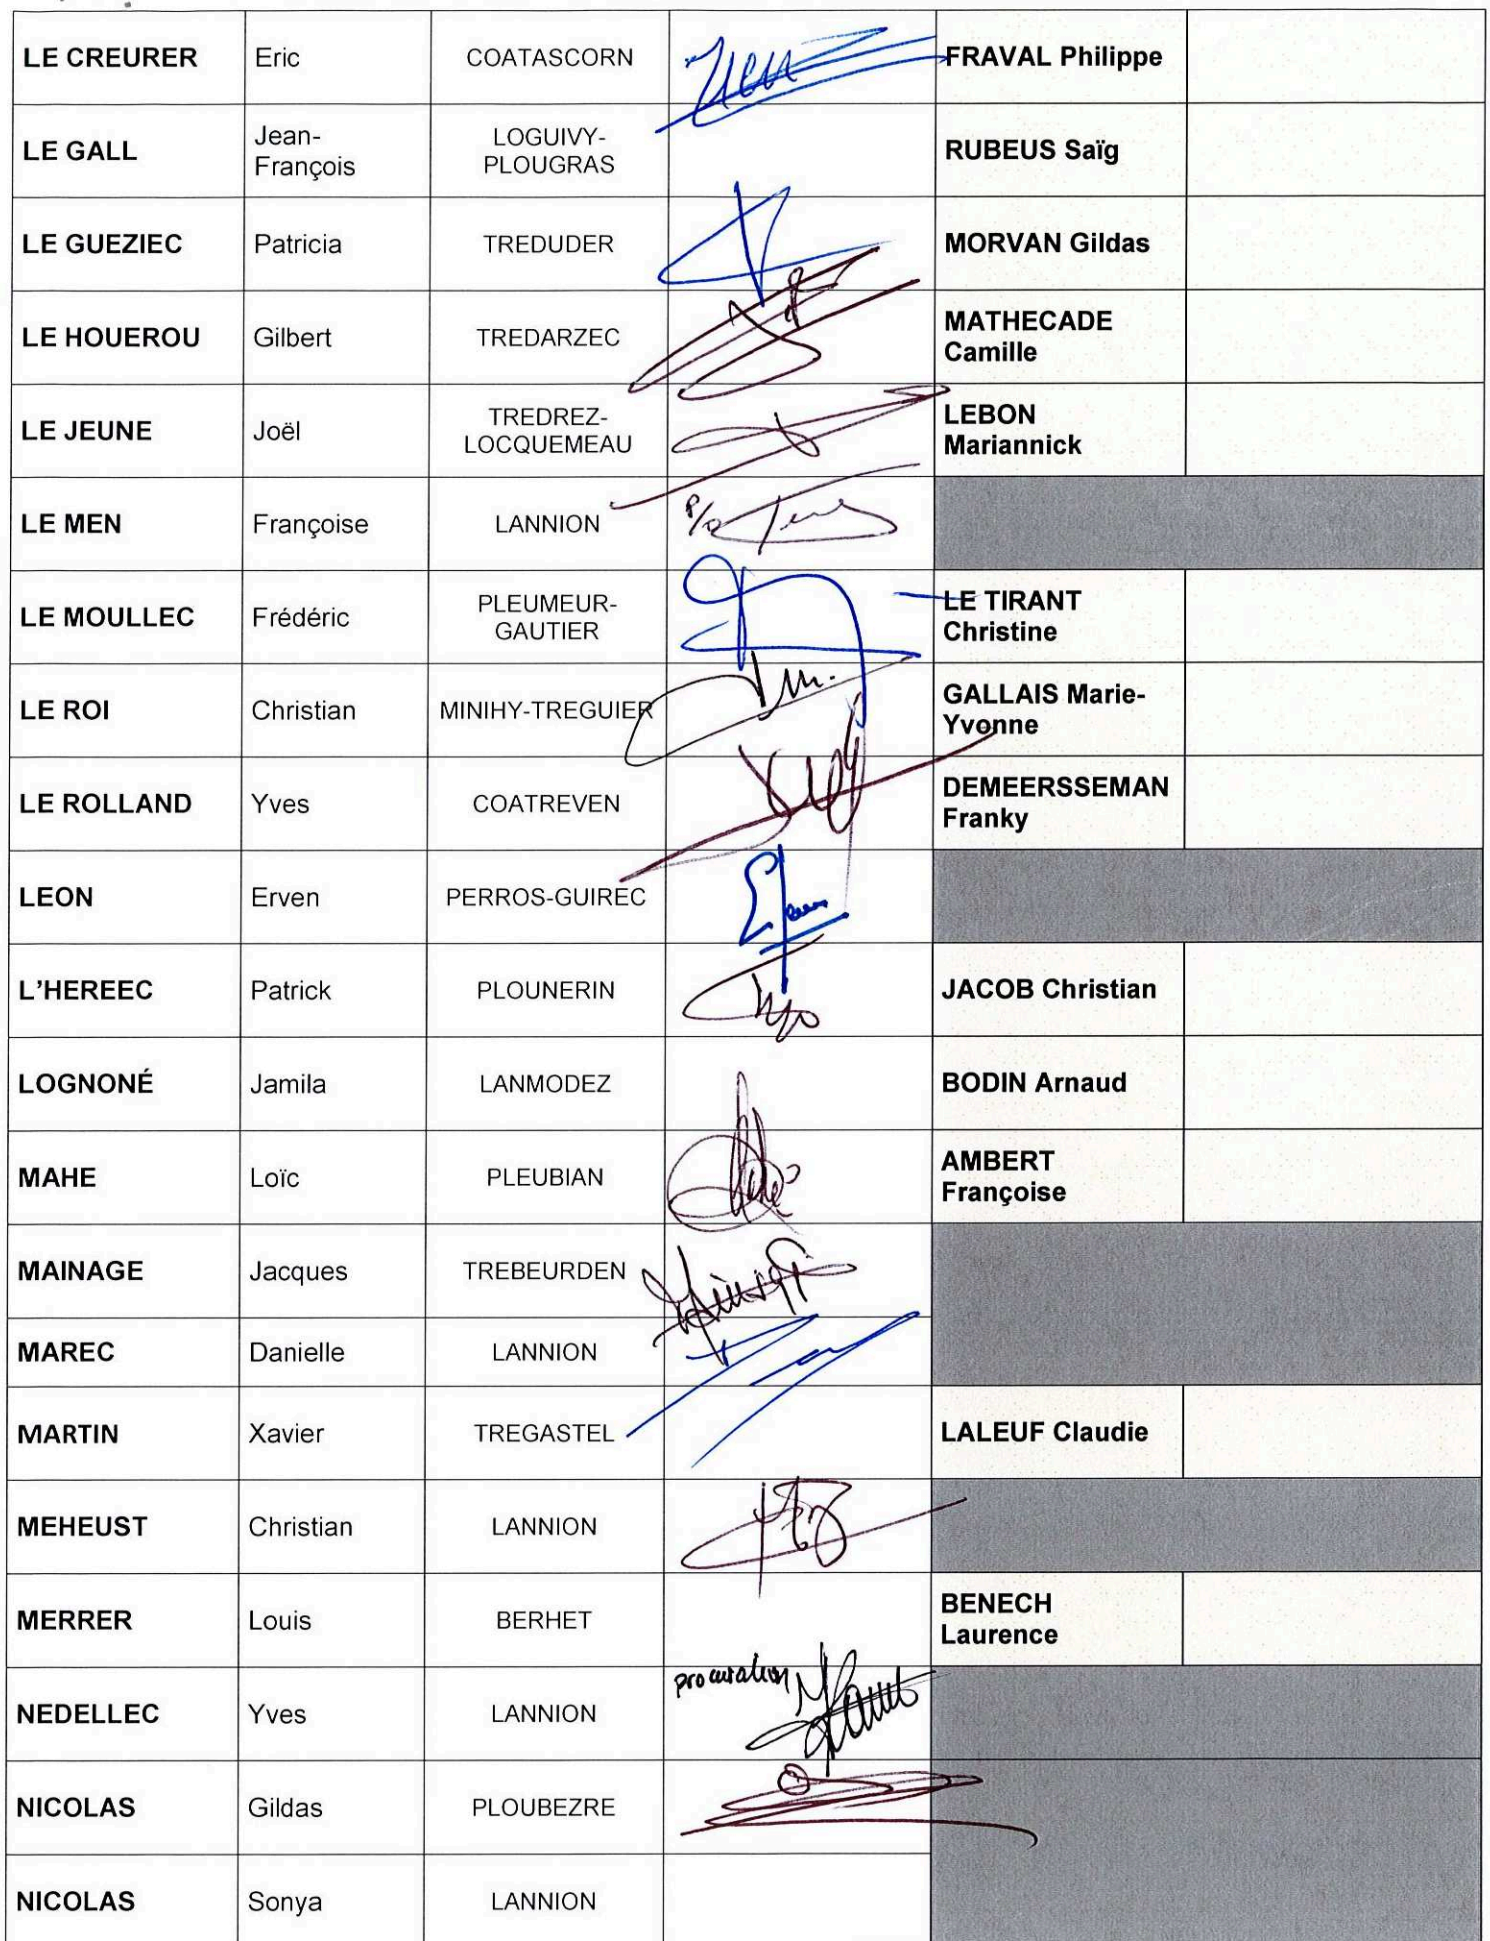 LE CREURER Eric COATASCORN FRAVAL Philippe
LE GALL Jean-
François LOGUIVY-
PLOUGRAS RUBEUS Saïg
LE GUEZIEC Patricia TREDUDER MORVAN Gildas
LE HOUEROU Gilbert TREDARZEC MATHECADE
Camille
LE JEUNE Joël TREDREZ-
LOCQUEMEAU LEBON
Mariannick
LE MEN Françoise LANNION P/o
LE MOULLEC Frédéric PLEUMEUR-
GAUTIER LE TIRANT
Christine
LE ROI Christian MINIHY-TREGUIER GALLAIS Marie-
Yvonne
LE ROLLAND Yves COATREVEN DEMEERSSEMAN
Franky
LEON Erven PERROS-GUIREC
L'HEREEC Patrick PLOUNERIN JACOB Christian
LOGNONÉ Jamila LANMODEZ BODIN Arnaud
MAHE Loïc PLEUBIAN AMBERT
Françoise
MAINAGE Jacques TREBEURDEN
MAREC Danielle LANNION
MARTIN Xavier TREGASTEL LALEUF Claudie
MEHEUST Christian LANNION
MERRER Louis BERHET BENECH
Laurence
NEDELLEC Yves LANNION procuration
NICOLAS Gildas PLOUBEZRE
NICOLAS Sonya LANNION